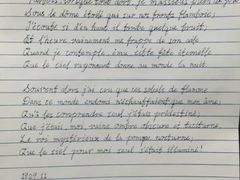 Sous le dôme étoilé qui sur nos fronts flamboie,
J'écoute si d'en haut il tombe quelque bruit;
Et l'heure vainement me frappe de son aile
Quand je contemple, ému, cette fête éternelle
Que le ciel rayonnant donne au monde la nuit.
Souvent alors j'ai cru que ces soleils de flamme
Dans ce monde endormi n'échauffaient que mon âme;
Qu'à les comprendre seul j'étais prédestiné;
Que j'étais, moi, vaine ombre obscure et taciturne,
Le roi mystérieux de la pompe nocturne;
Que le ciel pour moi seul s'était illuminé!